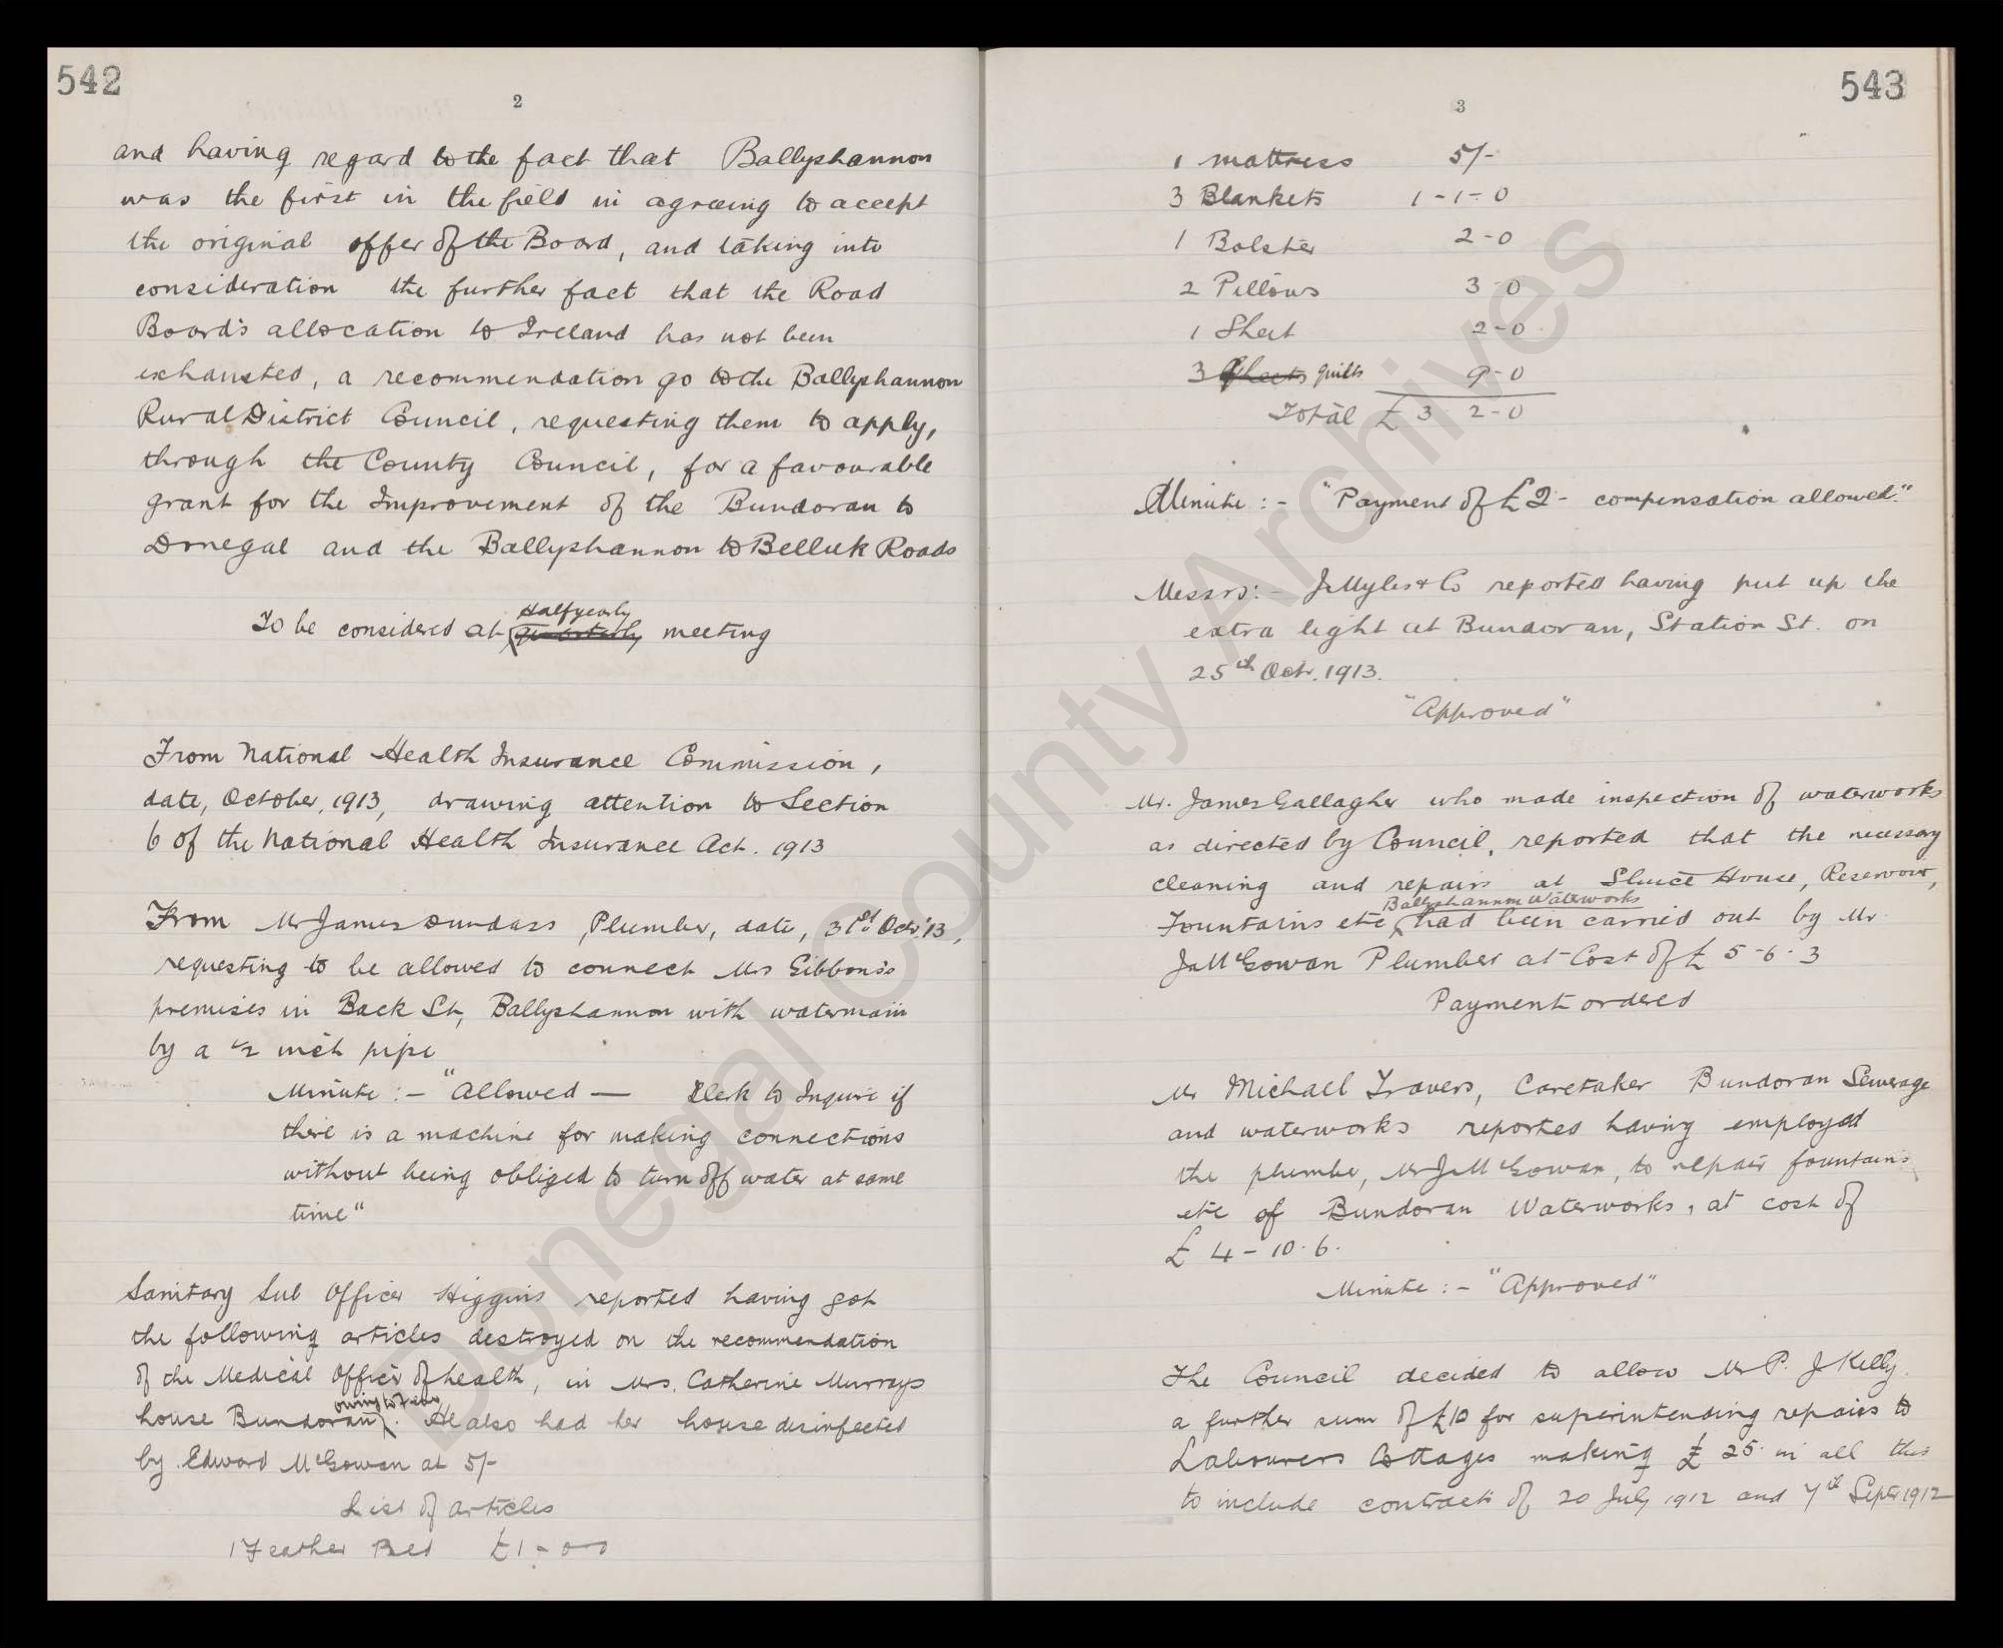 542
2
and having regard to the fact that Ballyshannon
was the first in the field in agreeing to accept
the original offer of the Board, and taking into
consideration the further fact that the Road
Board's allocation to Ireland has not been
exhausted, a recommendation go to the Ballyshannon
Rural District Council, requesting them to apply,
through the County Council, for a favourable
grant for the Improvement of the Bundoran to
Donegal and the Ballyshannon to Belleek Roads
Halfyearly
To be considered at quarterly meeting
From National Health Insurance Commission,
date, October, 1913, drawing attention to Section
6 of the National Health Insurance Act. 1913
From Mr James Dundass, Plumber, date, 31st Oct. '13,
requesting to be allowed to connect Mrs Gibbons's
premises in Back St, Ballyshannon with watermain
by a 1/2 inch pipe
Minute :- "Allowed — Clerk to Inquire if
there is a machine for making connections
without being obliged to turn off water at same
time"
Sanitary Sub Officer Higgins reported having got
the following articles destroyed on the recommendation
of the Medical Officer of health, in Mrs. Catherine Murrays
owing to
house Bundoran. He also had her house disinfected
by Edward McGowan at 5/-
List of articles
1 Feather Bed £1-0-0
543
3
1 mattress 5/-
3 Blankets 1-1-0
1 Bolster 2-0
2 Pillows 3-0
1 Sheet 2-0
3 Sheets quilts 9-0
Total £3 2-0
Minute :- "Payment of £2- compensation allowed."
Messrs:- J Myles & Co reported having put up the
extra light at Bundoran, Station St. on
25th Oct. 1913.
"Approved"
Mr. James Gallagher who made inspection of waterworks
as directed by Council, reported that the necessary
cleaning and repairs at Sluice House, Reservoir,
Ballyshannon Waterworks
Fountains etc had been carried out by Mr
Jn McGowan Plumber at Cost of £5-6-3
Payment ordered
Mr Michael Travers, Caretaker Bundoran Sewerage
and waterworks reported having employed
the plumber, Mr Jn McGowan, to repair fountains
etc of Bundoran Waterworks, at cost of
£4-10-6.
Minute :- "Approved"
The Council decided to allow Mr P. J Kelly.
a further sum of £10 for superintending repairs to
Labourers Cottages making £25 in all this
to include contracts of 20 July 1912 and 7th Septr 1912
Donegal County Archives